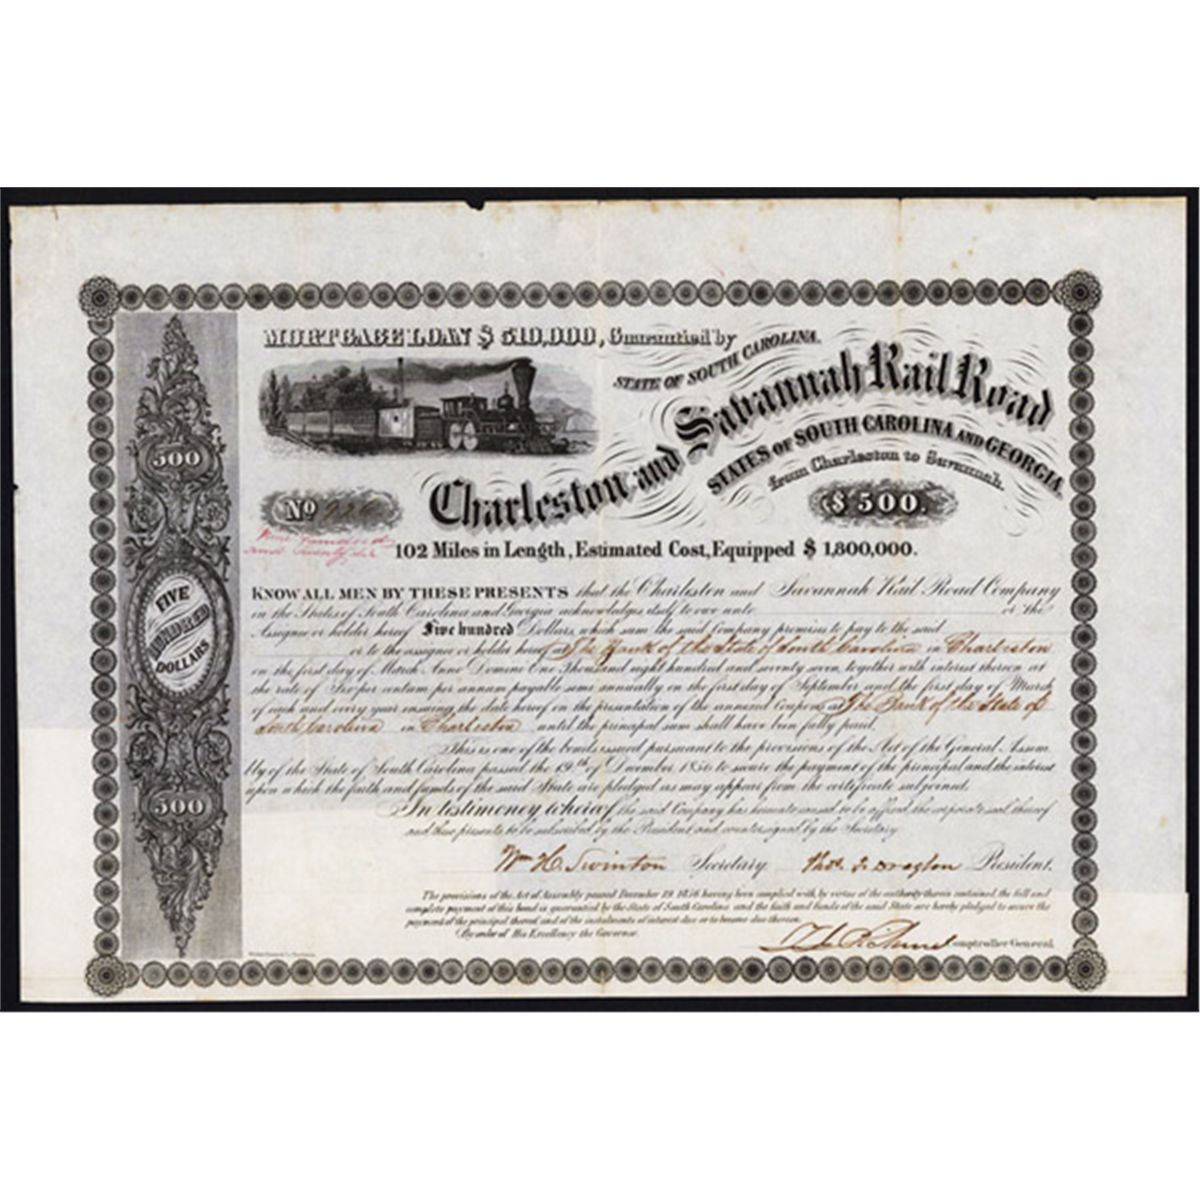 MORTGAGE LOAN $ 510,000, Guarantied by
STATE OF SOUTH CAROLINA.
Charleston and Savannah Rail Road
STATES OF SOUTH CAROLINA AND GEORGIA,
from Charleston to Savannah.
No 926
($ 500.)
Nine Hundred
and Twenty Six
102 Miles in Length, Estimated Cost, Equipped $ 1,800,000.
500
FIVE
HUNDRED
DOLLARS
500
KNOW ALL MEN BY THESE PRESENTS that the Charleston and Savannah Rail Road Company
in the States of South Carolina and Georgia acknowledges itself to owe unto or the
Assignee or holder hereof Five hundred Dollars, which sum the said Company promises to pay to the said
or to the assignee or holder hereof at The Bank of the State of South Carolina in Charleston
on the first day of March Anno Domini One Thousand eight hundred and seventy seven, together with interest thereon at
the rate of Six per centum per annum payable semi annually on the first day of September and the first day of March
of each and every year ensuing the date hereof on the presentation of the annexed Coupons at The Bank of the State of
South Carolina in Charleston until the principal sum shall have been fully paid.
This is one of the bonds issued pursuant to the provisions of the Act of the General Assem
bly of the State of South Carolina passed the 19th of December 1856 to secure the payment of the principal and the interest
upon which the faith and funds of the said State are pledged as may appear from the certificate subjoined.
In testimony whereof, the said Company has hereunto caused to be affixed the corporate seal thereof
and these presents to be subscribed by the President and countersigned by the Secretary
Wm H. Swinton Secretary Thos. F. Drayton President.
The provisions of the Act of Assembly passed December 19, 1856 having been complied with, by virtue of the authority therein contained, the full and
complete payment of this bond is guarantied by the State of South Carolina and the faith and funds of the said State are hereby pledged to secure the
payment of the principal thereof and of the instalments of interest due or to become due thereon.
By order of His Excellency the Governor.
Comptroller General